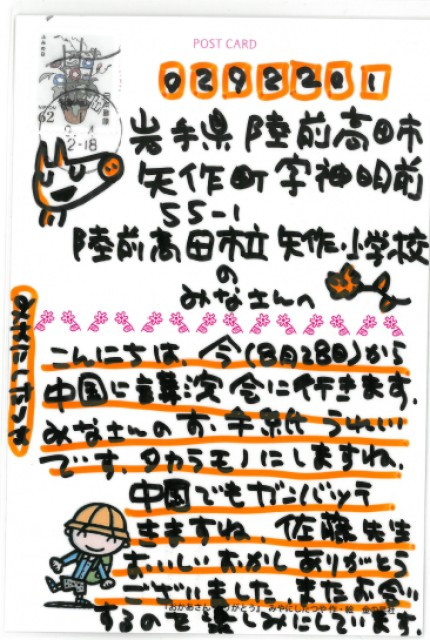 POST CARD
62
0292201
岩手県陸前高田市
矢作町字神明前
55-1
陸前高田市立矢作小学校
の
みなさんへ
みやにしたつや
こんにちは、今(8月28日)から
中国に講演会に行きます。
みなさんのお手紙うれしい
です。タカラモノにしますね。
中国でもガンバッテ
きますね。佐藤先生
おいしいおかしありがとう
ございました。またお会い
するのを楽しみにしています。
みやにしたつや作・絵 金の星社